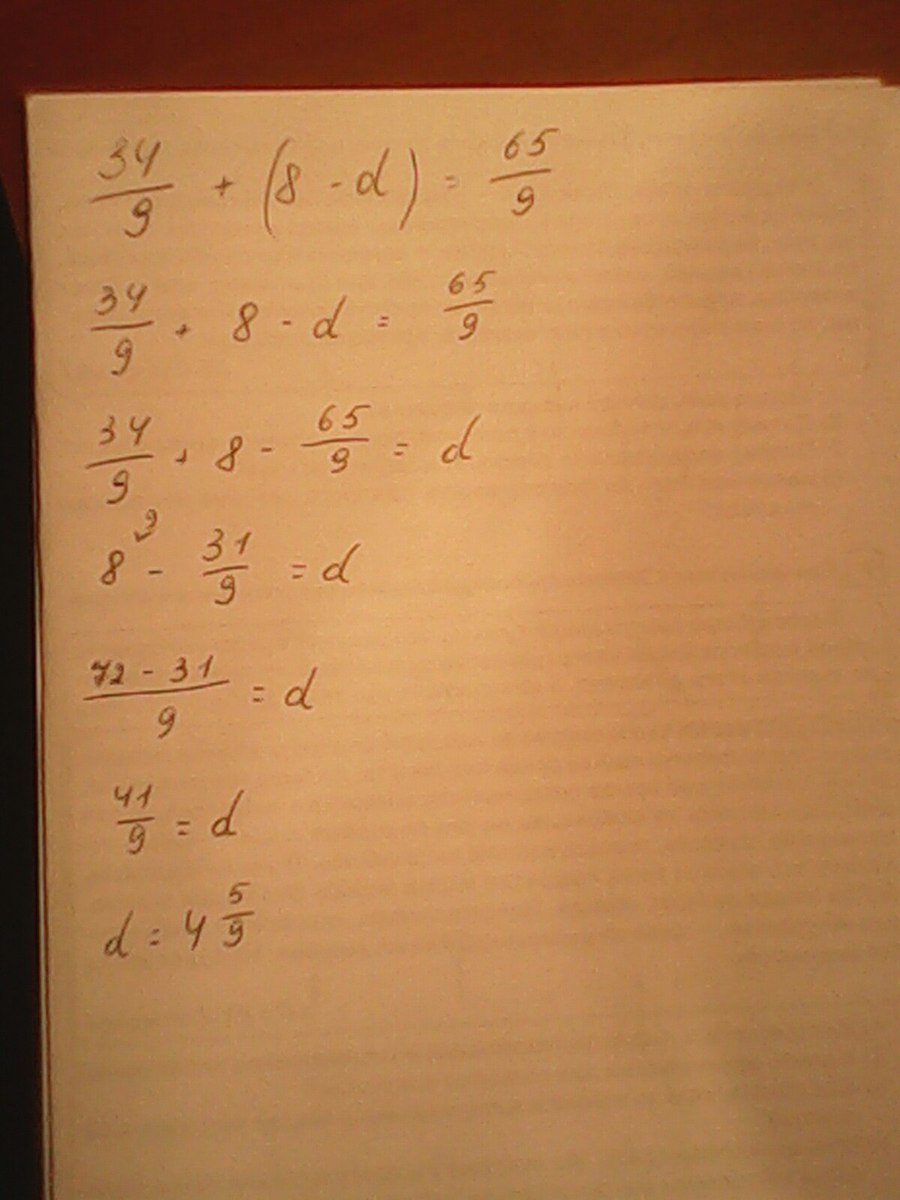 34/9 + (8 - d) = 65/9
34/9 + 8 - d = 65/9
34/9 + 8 - 65/9 = d
8^9 - 31/9 = d
72 - 31/9 = d
41/9 = d
d = 4 5/9